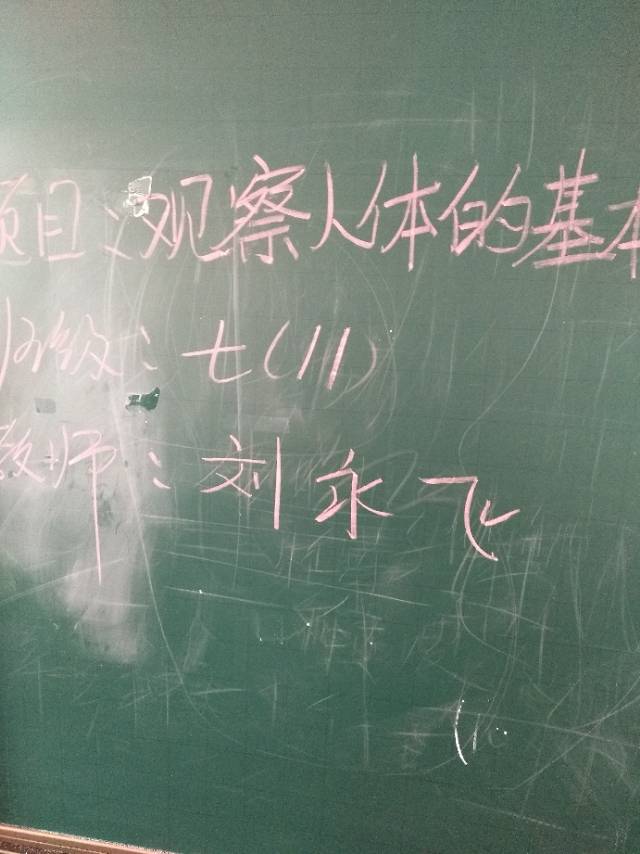 项目:观察人体的基本
班级:七(11)
教师:刘永飞